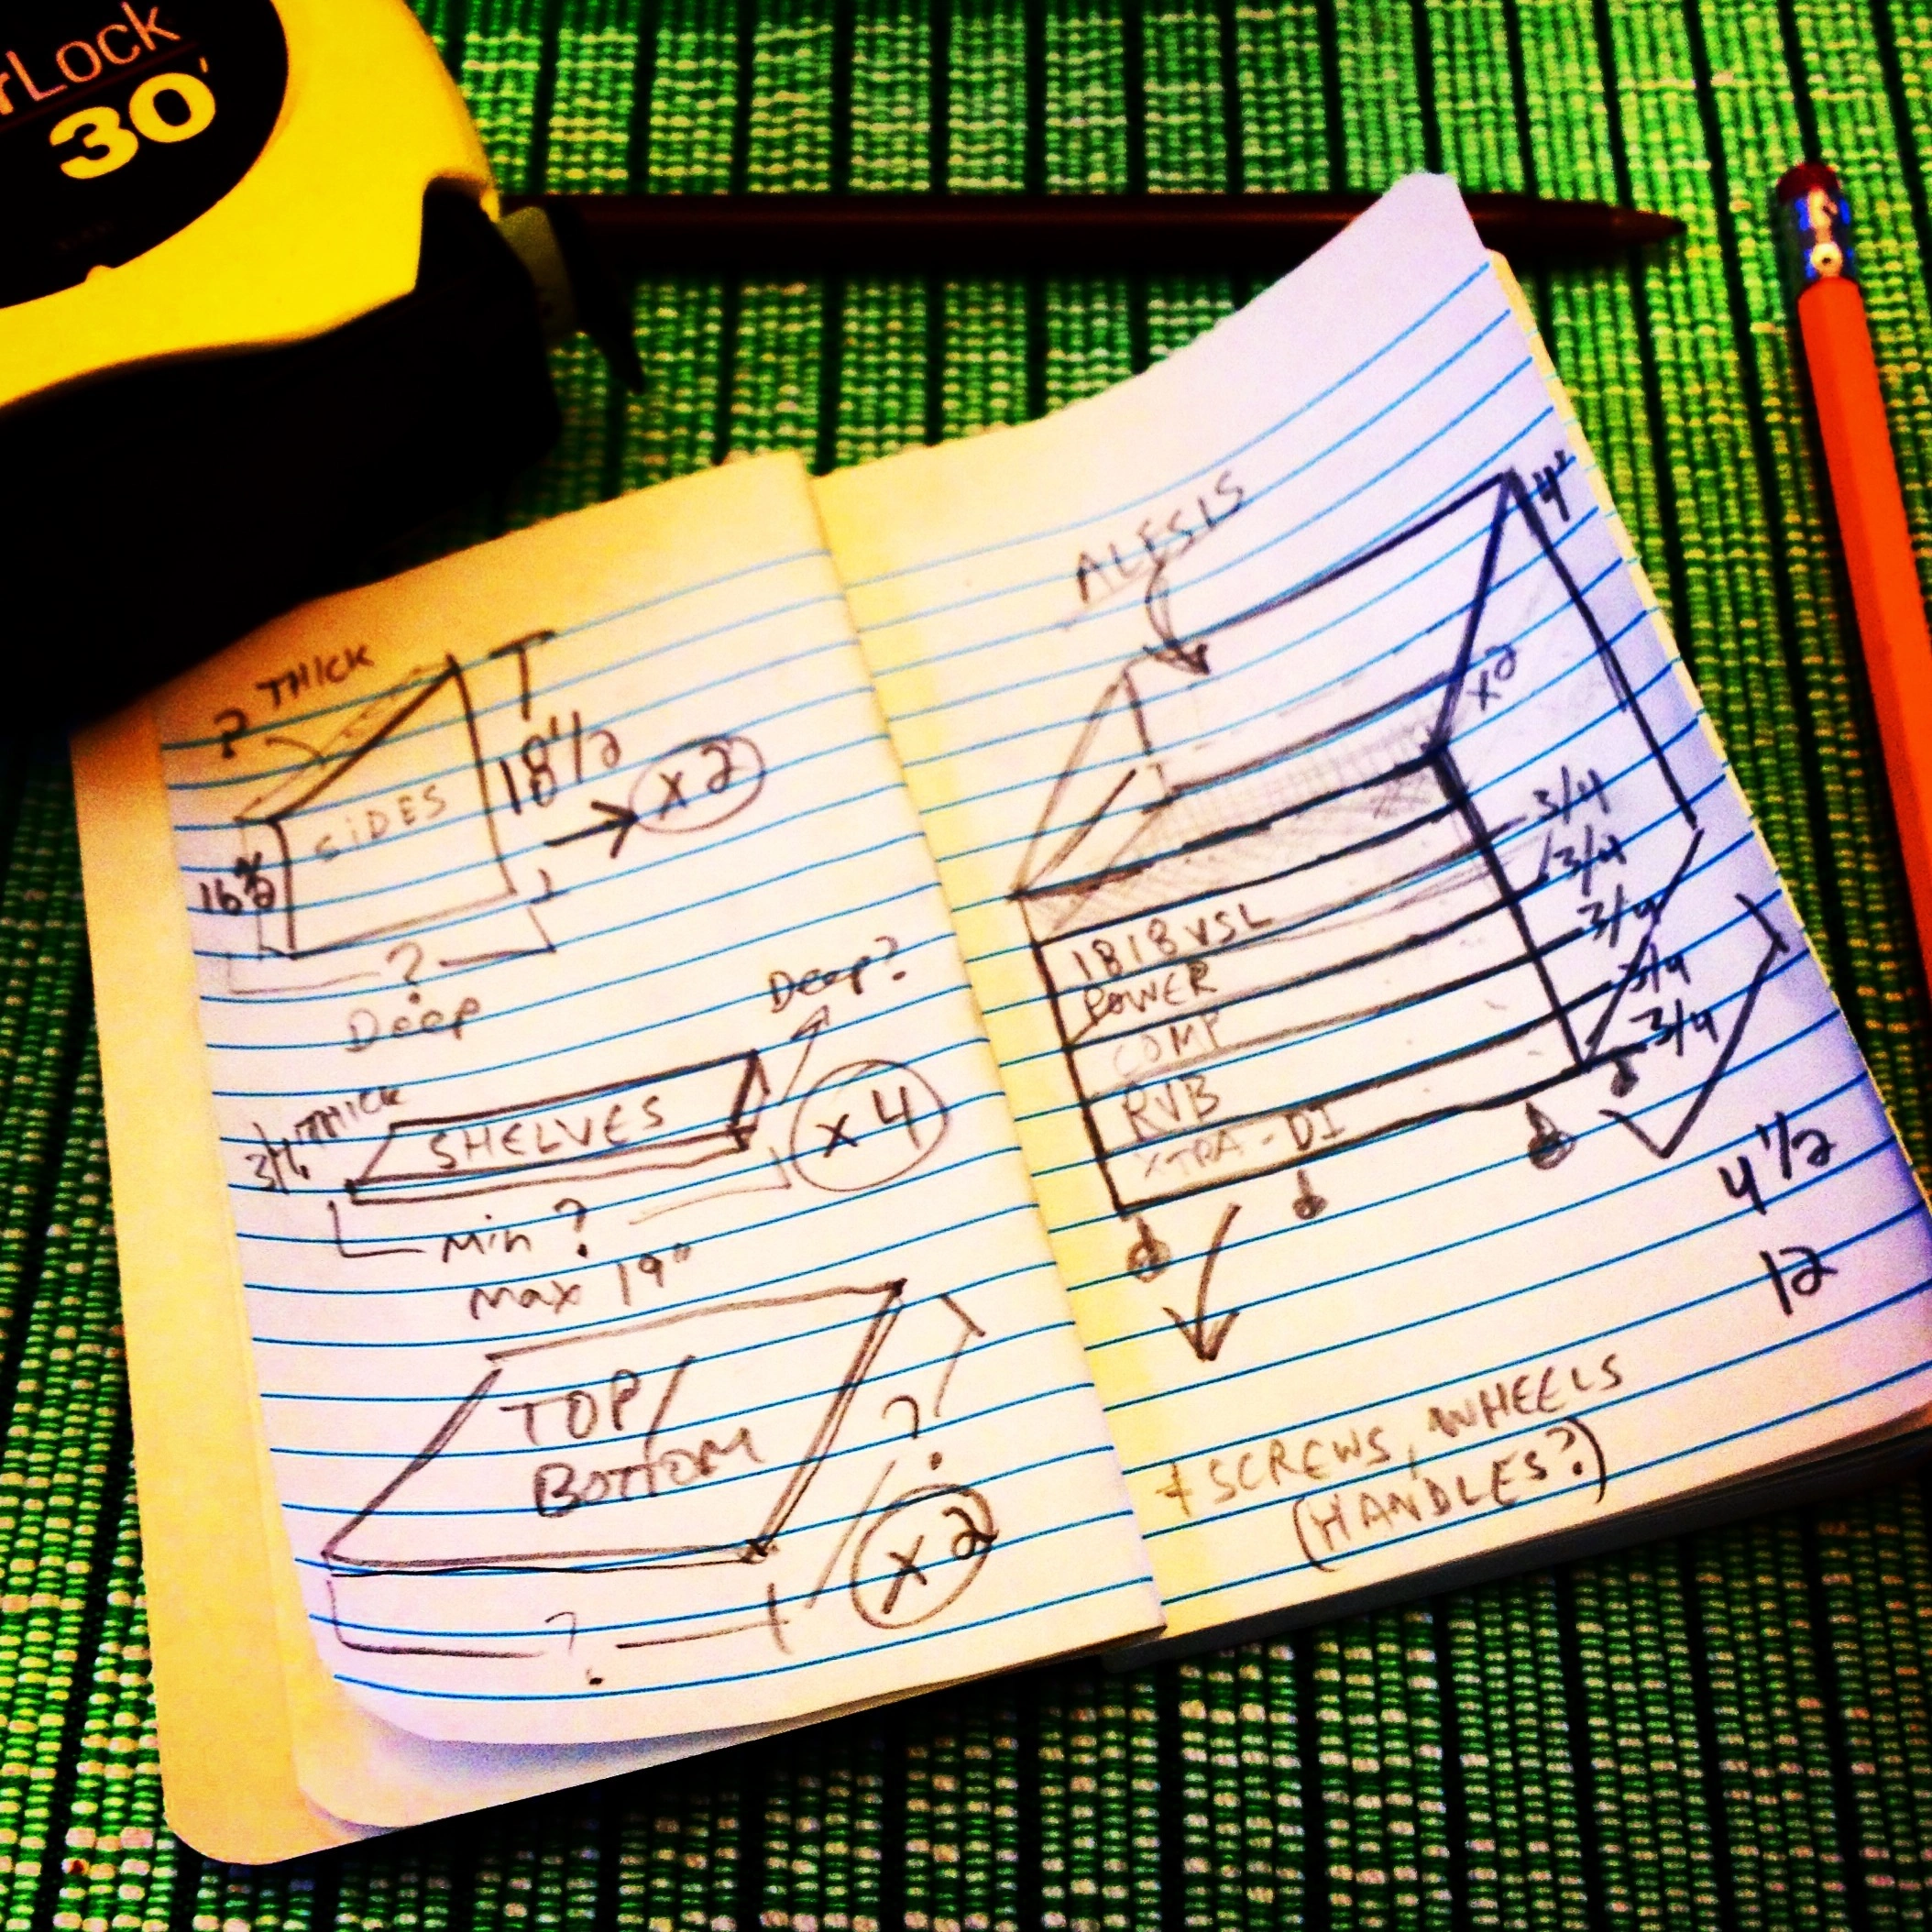 rLock
30'
? THICK
T
18 1/2
SIDES
→ x2
16
?
Deep
Deep?
3/4 THICK
SHELVES
x 4
Min ?
Max 19"
TOP/
BOTTOM
?
x 2
?
ALESIS
4"
x2
3/4
3/4
3/4
3/4
3/4
1818VSL
POWER
COMP
RVB
XTRA-DI
4 1/2
12
+ SCREWS, WHEELS
(HANDLES?)